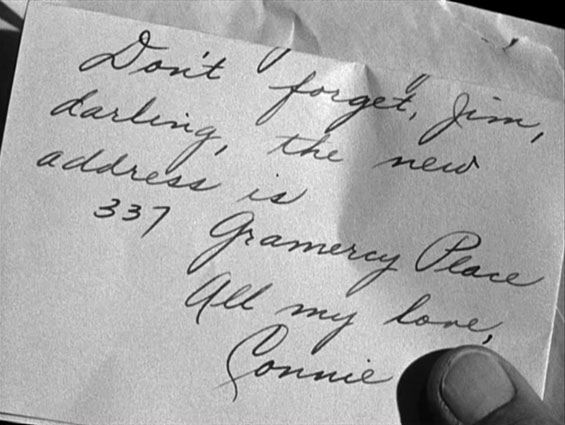 Don't forget, Jim,
darling, the new
address is
337 Gramercy Place
All my love,
Connie